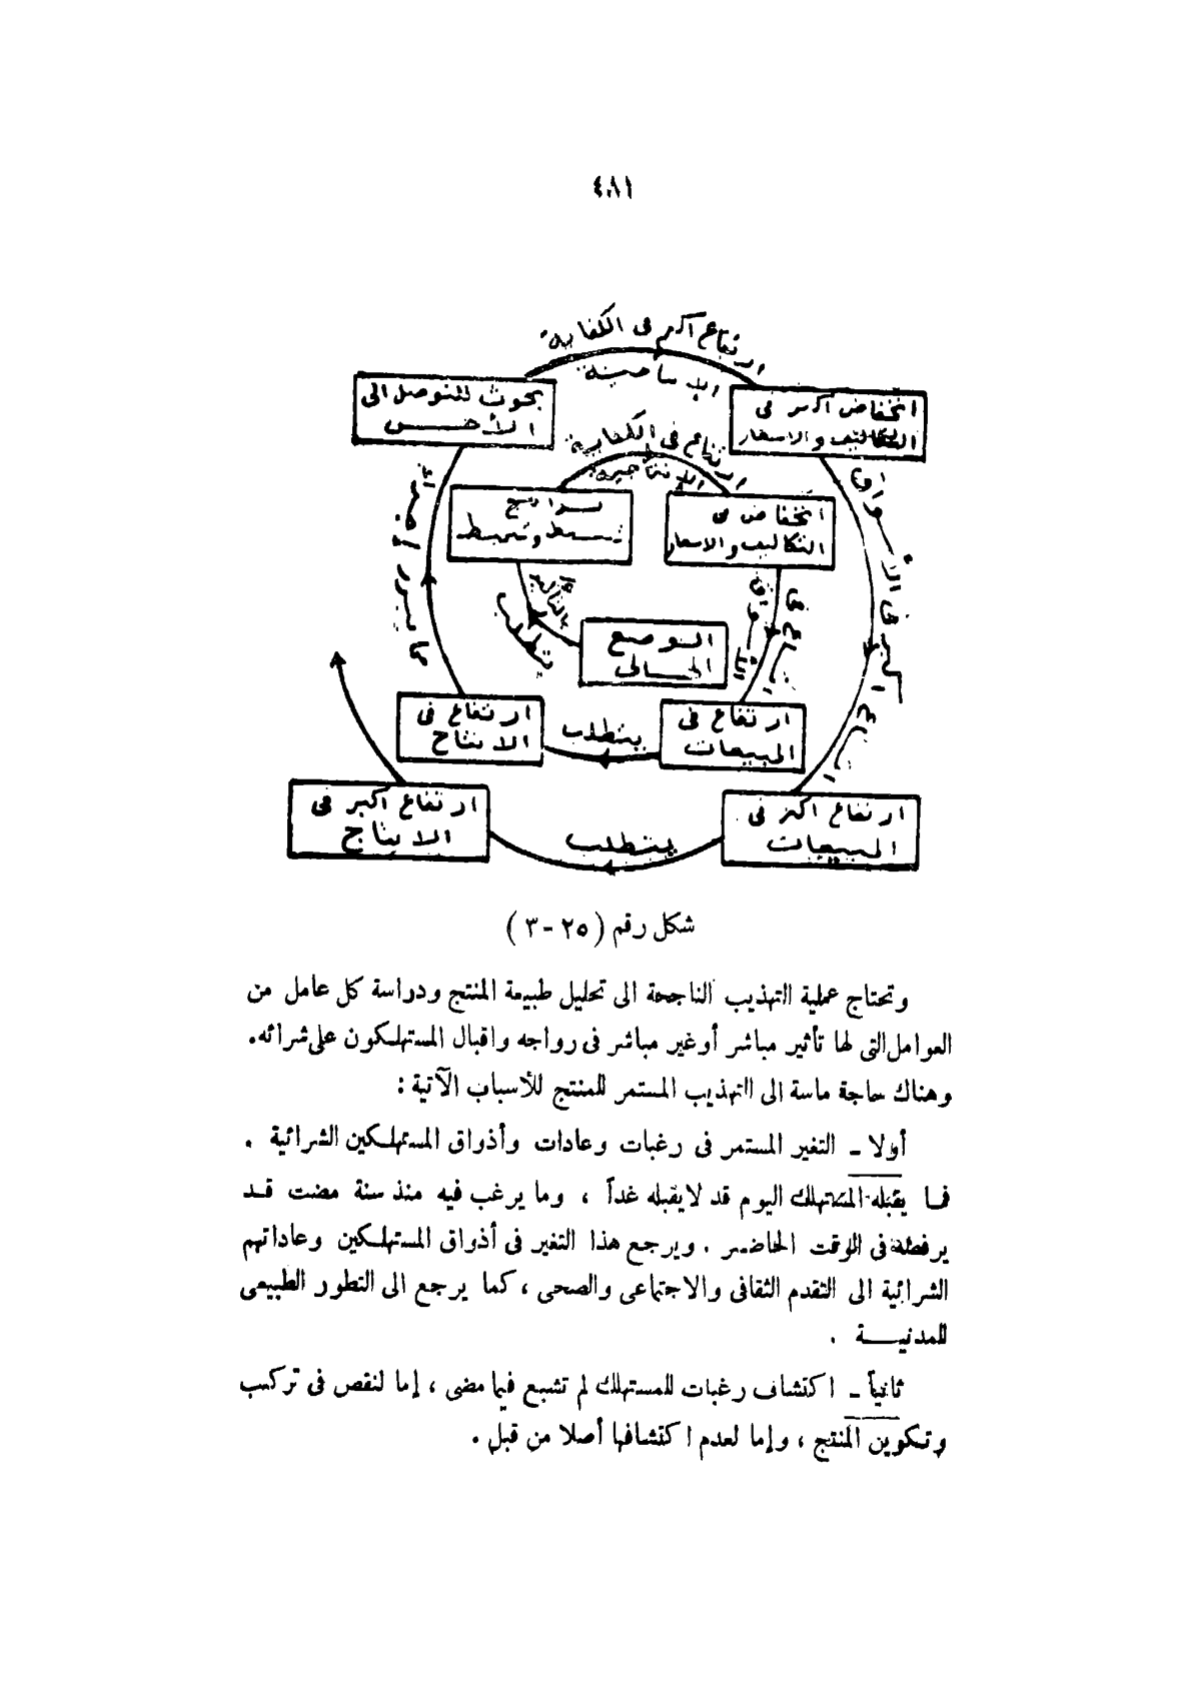 ٤٨١
ارتفاع اكبر فى الكفاية
الإنتاجية
بحوث للتوصل الى
الأحســن
انخفاض اكبر فى
التكاليف والاسعار
ارتفاع فى الكفاية
الإنتاجية
برامج
تبسيط وتنميط
انخفاض فى
التكاليف والاسعار
اتساع اكبر فى الأسواق
اتساع فى
الأسواق
يتطلب
الوضع
الحالى
ارتفاع فى
الانتاج
يتطلب
ارتفاع فى
المبيعات
ارتفاع اكبر فى
الانتاج
يتطلب
ارتفاع اكبر فى
المبيعات
شكل رقم ( ٢٥ - ٣ )
وتحتاج عملية التهذيب الناجحة الى تحليل طبيعة المنتج ودراسة كل عامل من
العوامل التى لها تأثير مباشر أو غير مباشر فى رواجه واقبال المستهلكون على شرائه.
وهناك حاجة ماسة الى التهذيب المستمر للمنتج للأسباب الآتية :
أولا ـ التغير المستمر فى رغبات وعادات وأذواق المستهلكين الشرائية .
فما يقبله المستهلك اليوم قد لا يقبله غداً ، وما يرغب فيه منذ سنة مضت قد
يرفضه فى الوقت الحاضر . ويرجع هذا التغير فى أذواق المستهلكين وعاداتهم
الشرائية الى التقدم الثقافى والاجتماعى والصحى ، كما يرجع الى التطور الطبيعى
للمدنيـــة .
ثانياً ـ اكتشاف رغبات للمستهلك لم تشبع فيما مضى ، إما لنقص فى تركيب
وتكوين المنتج ، وإما لعدم اكتشافها أصلا من قبل .